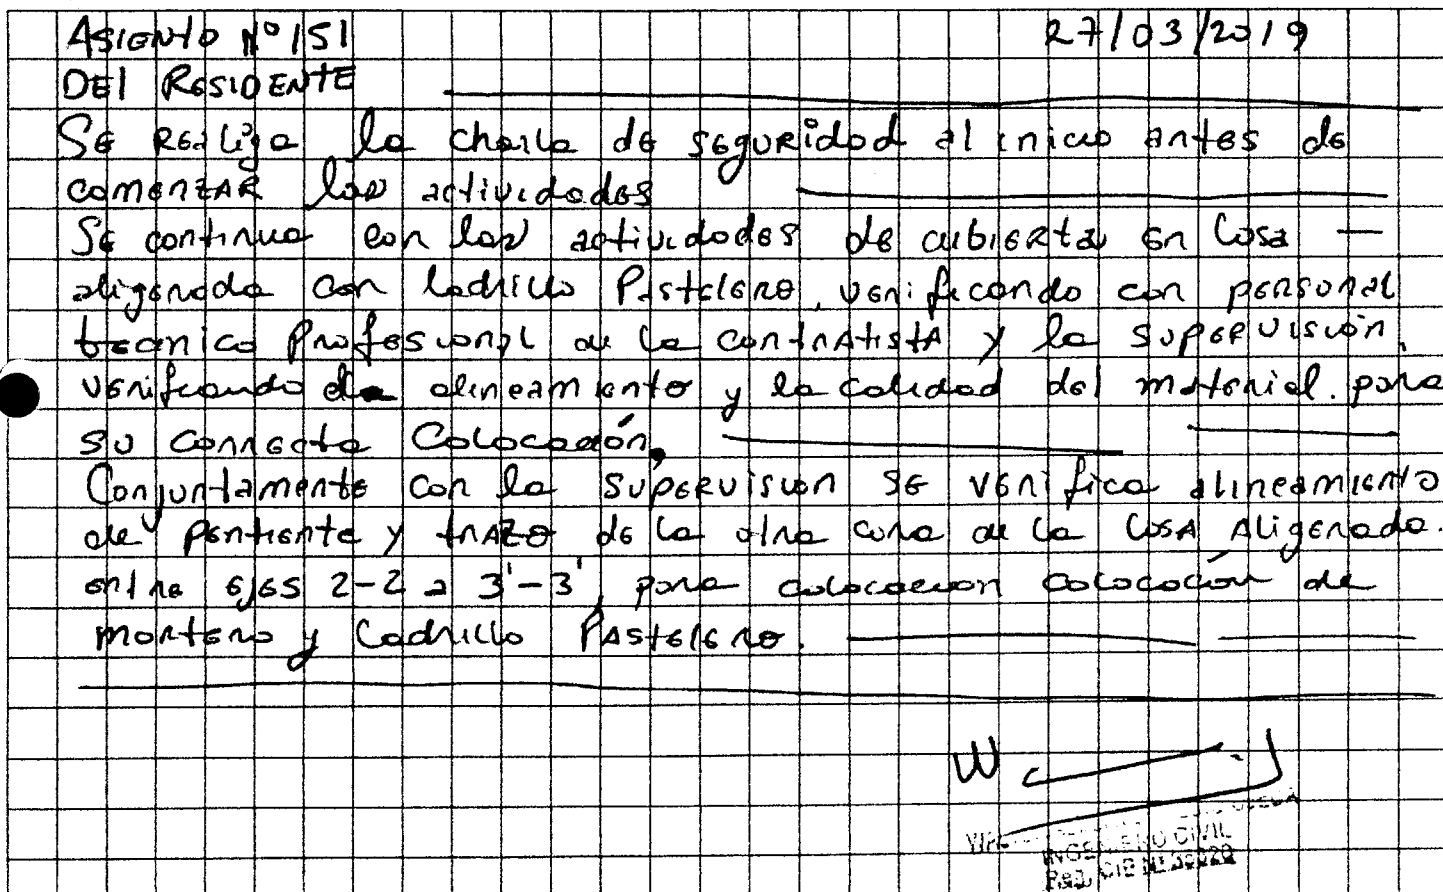 ASIENTO N° 151 27/03/2019
DEL RESIDENTE
SE REALIZA la charla de seguridad al inicio antes de
comenzar las actividades
Se continua con las actividades de cubierta en losa —
aligerada con ladrillo Pastelero, verificando con personal
tecnico Profesional de la contratista y la supervisión,
verificando de alineamiento y la calidad del material. para
su correcta colocación.
Conjuntamente con la supervision se verifica alineamiento
de pentiente y trazo de la otra cara de la losa aligerada.
entre ejes 2-2 a 3'-3', para colocacion colocación de
mortero y ladrillo Pastelero.
INGENIERO CIVIL